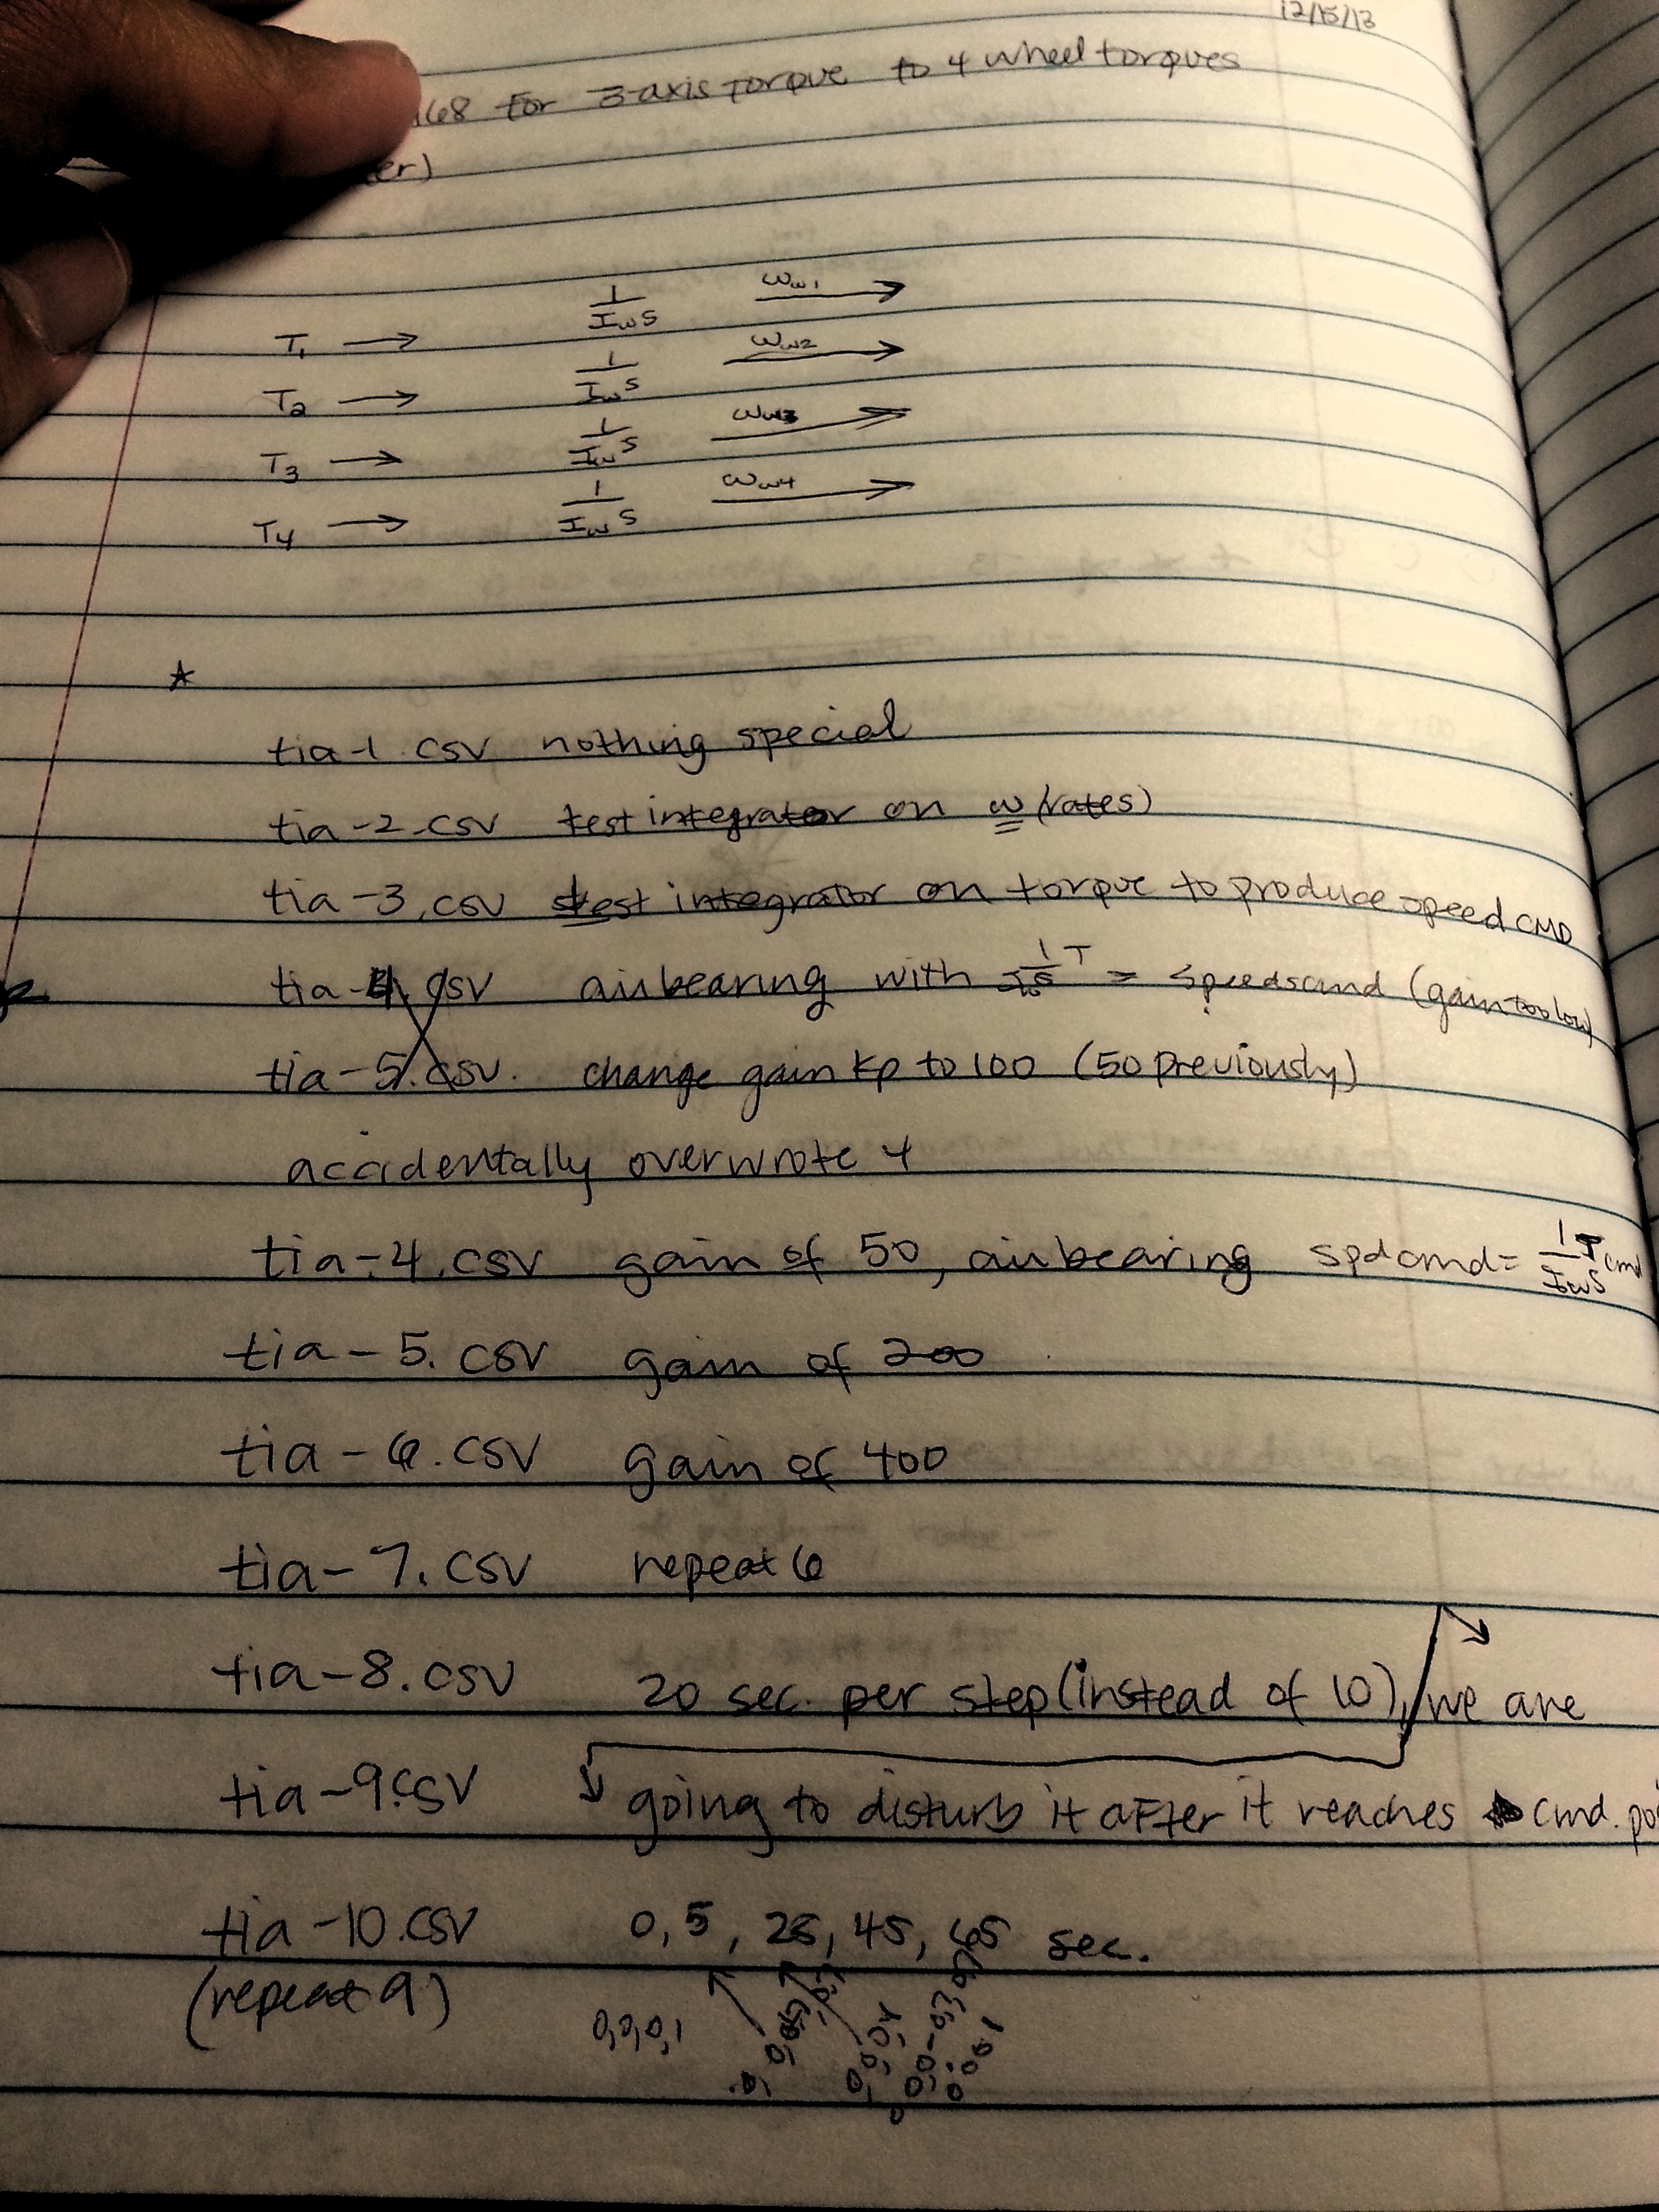 12/15/13
168 for 3-axis torque to 4 wheel torques
er)
T1 → 1/(Iw s) ωw1 →
T2 → 1/(Iw s) ωw2 →
T3 → 1/(Iw s) ωw3 →
T4 → 1/(Iw s) ωw4 →
☆
tia-1.csv nothing special
tia-2.csv test integrator on ω (rates)
tia-3.csv test integrator on torque to produce speed CMD
tia-4.csv airbearing with 1/(Iw s) T = speedscmd (gain too low)
tia-5.csv. change gain kp to 100 (50 previously)
accidentally overwrote 4
tia-4.csv gain of 50, airbearing spd cmd = 1/(Iw s) Tcmd
tia-5.csv gain of 200
tia-6.csv gain of 400
tia-7.csv repeat 6
tia-8.csv 20 sec. per step (instead of 10), we are
tia-9.csv going to disturb it after it reaches cmd.
tia-10.csv 0, 5, 25, 45, 65 sec.
(repeat 9)
0,0,0,1